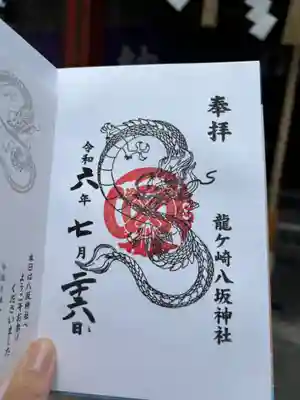 奉拝
龍ヶ崎八坂神社
令和六年七月二十八日
本日は八坂神社へ
ようこそお参り
くださいました